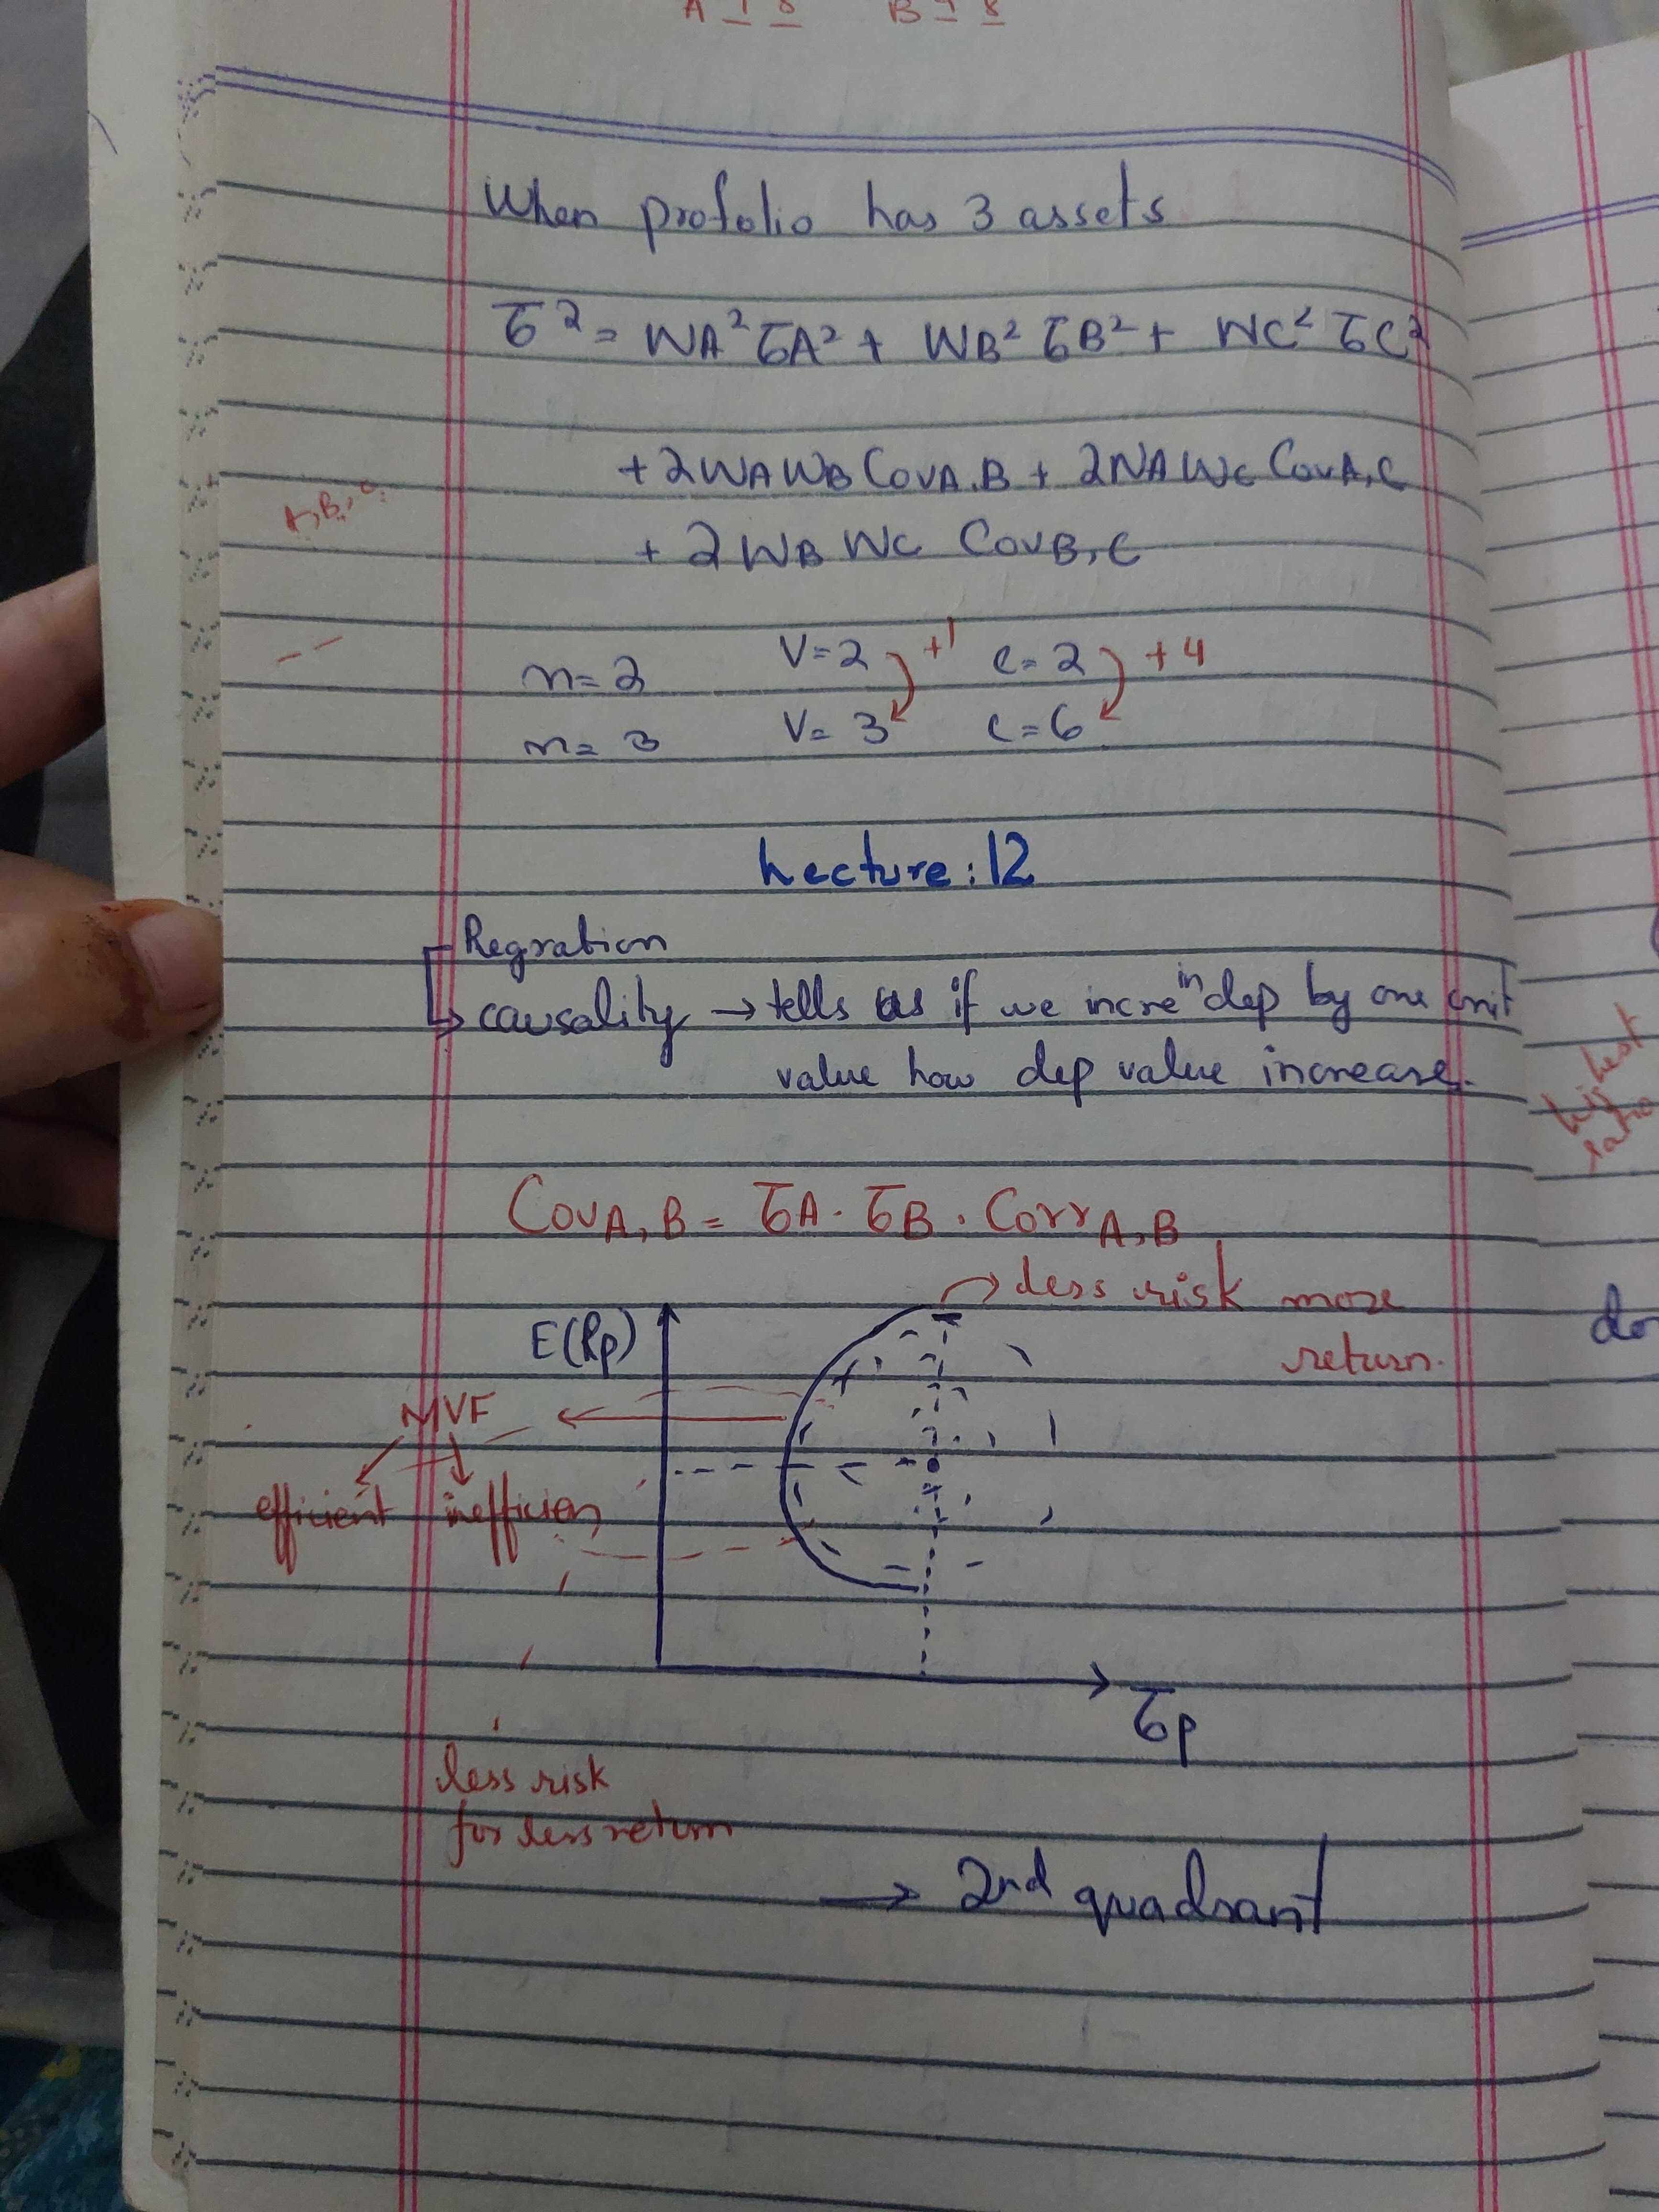 A B
When profolio has 3 assets
σ² = WA² σA² + WB² σB² + WC² σC²
+ 2WAWB CovA,B + 2WAWC CovA,C
A,B,C
+ 2WB WC CovB,C
n=2 V=2 +1 C=2 +4
n=3 V=3 C=6
Lecture: 12
Regration
causality → tells us if we incre in dep by one unit
value how dep value increase.
highest
ratio
CovA,B = σA . σB . CorrA,B
less risk more
return.
E(Rp)
do
MVF
efficient inefficien
σp
less risk
for less return
→ 2nd quadrant